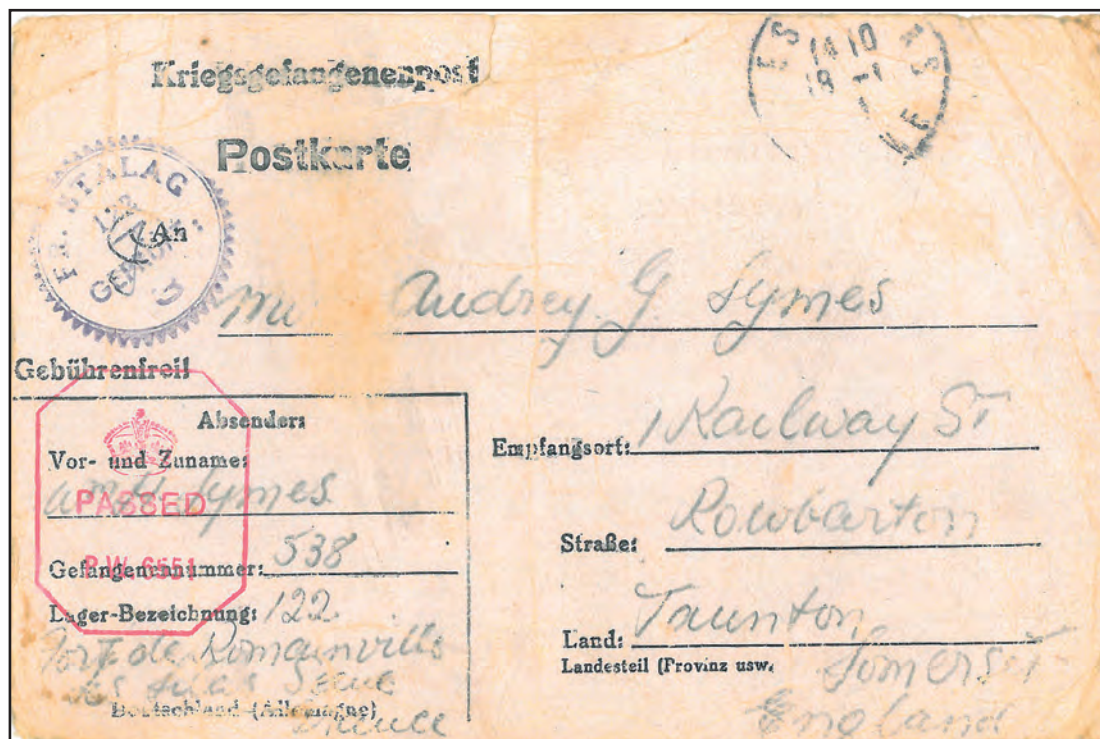 Kriegsgefangenenpost
Postkarte
ES 14 10 AS
18 -1 E
FR. STALAG
122
GEPRÜFT
An
Audrey. G. Symes
Gebührenfrei!
Absender:
Vor- und Zuname:
Symes
PASSED
P.W. 6551
Gefangenennummer: 538
Lager-Bezeichnung: 122
Fort de Romainville
Les Lilas Seine
Deutschland (Allemagne)
France
Empfangsort: 1 Railway St
Rowbarton
Straße:
Land: Taunton
Landesteil (Provinz usw.
Somerset
England